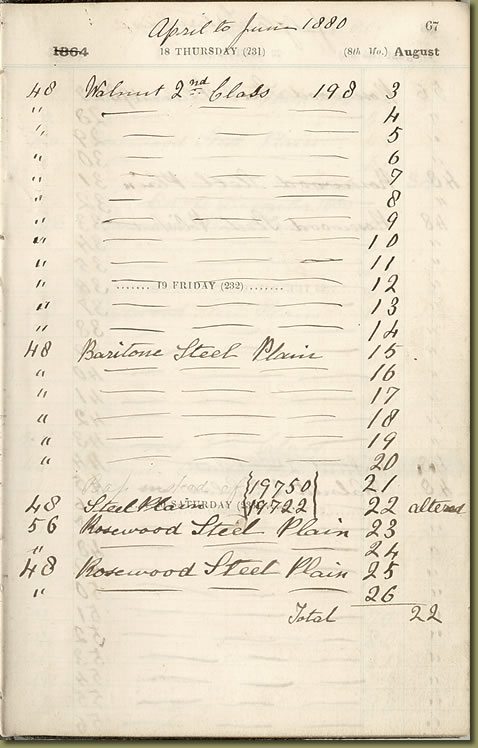 April to June 1880
67
1864 18 THURSDAY (231) (8th Mo.) August
48 Walnut 2nd Class 198 3
" 4
" 5
" 6
" 7
" 8
" 9
" 10
" 11
" ....... 19 FRIDAY (232) ....... 12
" 13
" 14
48 Baritone Steel Plain 15
" 16
" 17
" 18
" 19
" 20
instead of 19750 21
48 Steel Plain SATURDAY 19722 22 altered
56 Rosewood Steel Plain 23
" 24
48 Rosewood Steel Plain 25
" 26
Total 22